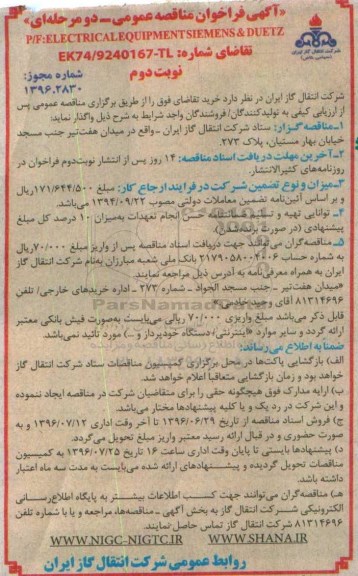 «آگهی فراخوان مناقصه عمومی ـ دو مرحله‌ای»
P/F:ELECTRICALEQUIPMENTSIEMENS & DUETZ
شرکت انتقال گاز ایران
تقاضای شماره: EK74/9240167-TL
نوبت دوم
شماره مجوز:
۱۳۹۶.۲۸۳۰
شرکت انتقال گاز ایران در نظر دارد خرید تقاضای فوق را از طریق برگزاری مناقصه عمومی پس
از ارزیابی کیفی به تولیدکنندگان/ فروشندگان واجد شرایط به شرح ذیل واگذار نماید:
۱ـ مناقصه گزار: ستاد شرکت انتقال گاز ایران - واقع در میدان هفت‌تیر جنب مسجد
خیابان بهار مستیان، پلاک ۲۷۳.
۲ـ آخرین مهلت دریافت اسناد مناقصه: ۱۴ روز پس از انتشار نوبت‌دوم فراخوان در
روزنامه‌های کثیرالانتشار.
۳ـ میزان و نوع تضمین شرکت در فرایند ارجاع کار: مبلغ ۱۷۱/۶۴۴/۵۰۰ریال
و بر اساس آئین‌نامه تضمین معاملات دولتی مصوب ۱۳۹۴/۰۹/۲۲ می‌باشد.
۴ـ توانایی تهیه و تسلیم ضمانتنامه حسن انجام تعهدات به‌میزان ۱۰ درصد کل مبلغ
پیشنهادی (در صورت برنده‌شدن).
۵ـ مناقصه‌گران می‌توانند جهت دریافت اسناد مناقصه پس از واریز مبلغ ۷۰/۰۰۰ریال
به شماره حساب ۲۱۷۹۰۵۸۰۰۴۰۰۶ بانک ملی شعبه مبارزان به‌نام شرکت انتقال گاز
ایران به همراه معرفی‌نامه به آدرس ذیل مراجعه نمایند.
«میدان هفت‌تیر ـ جنب مسجد الجواد ـ شماره ۲۷۳ ـ اداره خریدهای خارجی/ تلفن
۸۱۳۱۴۶۹۶ آقای وحید خادمی»
قابل ذکر می‌باشد مبلغ واریزی ۷۰/۰۰۰ ریالی می‌بایست به‌صورت فیش بانکی معتبر
ارائه گردد و سایر موارد «اینترنتی/ دستگاه خودپرداز و...» مورد تائید نمی‌باشد.
ضمناً به اطلاع می‌رساند:
الف) بازگشایی پاکت‌ها در محل برگزاری کمیسیون مناقصات ستاد شرکت انتقال گاز
خواهد بود و زمان بازگشایی متعاقبا اعلام خواهد شد.
ب) ارایه مدارک فوق هیچگونه حقی را برای متقاضیان شرکت در مناقصه ایجاد ننموده
و این شرکت در رد یک و یا کلیه پیشنهادها مختار می‌باشد.
ج) فروش اسناد مناقصه از تاریخ ۱۳۹۶/۰۶/۲۹ تا آخر وقت اداری ۱۳۹۶/۰۷/۱۲ و به
صورت حضوری و در قبال ارائه رسید معتبر واریز مبلغ تحویل می‌گردد.
د) پیشنهادها بایستی تا پایان وقت اداری ساعت ۱۶ تاریخ ۱۳۹۶/۰۷/۲۵ به کمیسیون
مناقصات تحویل گردیده و پیشنهادهای ارائه شده می‌بایست به مدت سه ماه اعتبار
داشته باشد.
هـ) مناقصه‌گران می‌توانند جهت کسب اطلاعات بیشتر به پایگاه اطلاع‌رسانی
الکترونیکی شرکت انتقال گاز به بخش آگهی ـ مناقصه‌ها، مراجعه و یا با شماره تلفن
۸۱۳۱۴۶۹۶ شرکت انتقال گاز تماس حاصل نمایند.
WWW.NIGC-NIGTC.IR WWW.SHANA.IR
روابط عمومی شرکت انتقال گاز ایران